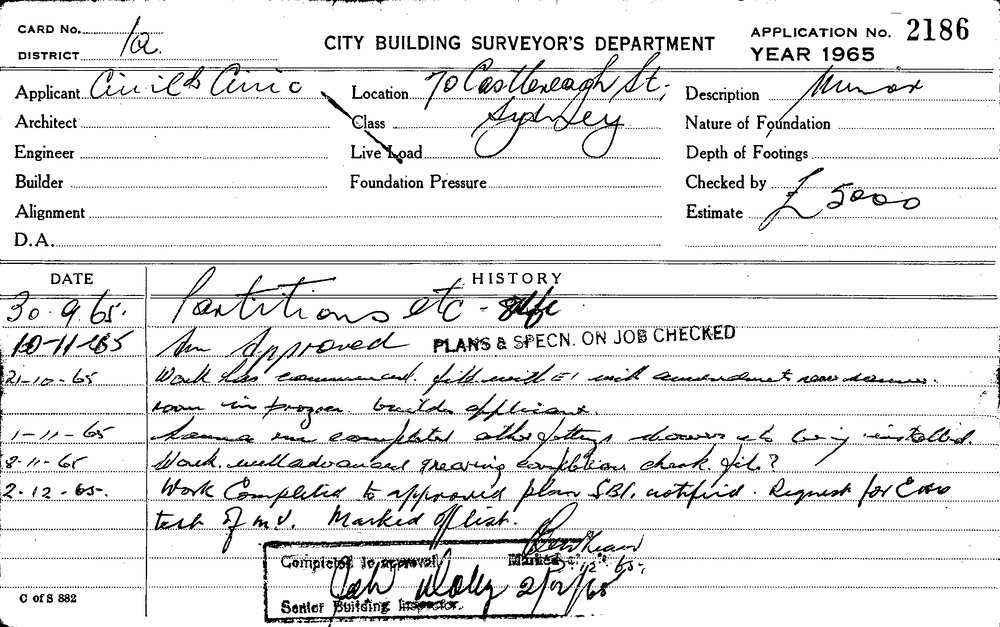 CARD No. 1a.
DISTRICT
CITY BUILDING SURVEYOR'S DEPARTMENT
APPLICATION No. 2186
YEAR 1965
Applicant Civil & Civic
Location 70 Castlereagh St;
Description Minor
Architect
Class Sydney
Nature of Foundation
Engineer
Live Load
Depth of Footings
Builder
Foundation Pressure
Checked by
Alignment
Estimate £ 5000
D.A.
DATE HISTORY
30.9.65. Partitions etc -
10-11-65 Approved PLANS & SPECN. ON JOB CHECKED
21-10-65 Work has commenced. file with E1 with amendment new sauna
room in progress. builder applicant.
1-11-65 Sauna room completed other fittings showers etc being installed.
8-11-65 Work well advanced nearing completion check file?
2.12.65. Work Completed to approved plan SBI. notified. Request for
test of M.V. Marked off list.
Completed to approval Marked
2/12/65
Senior Building Inspector.
C of S 882